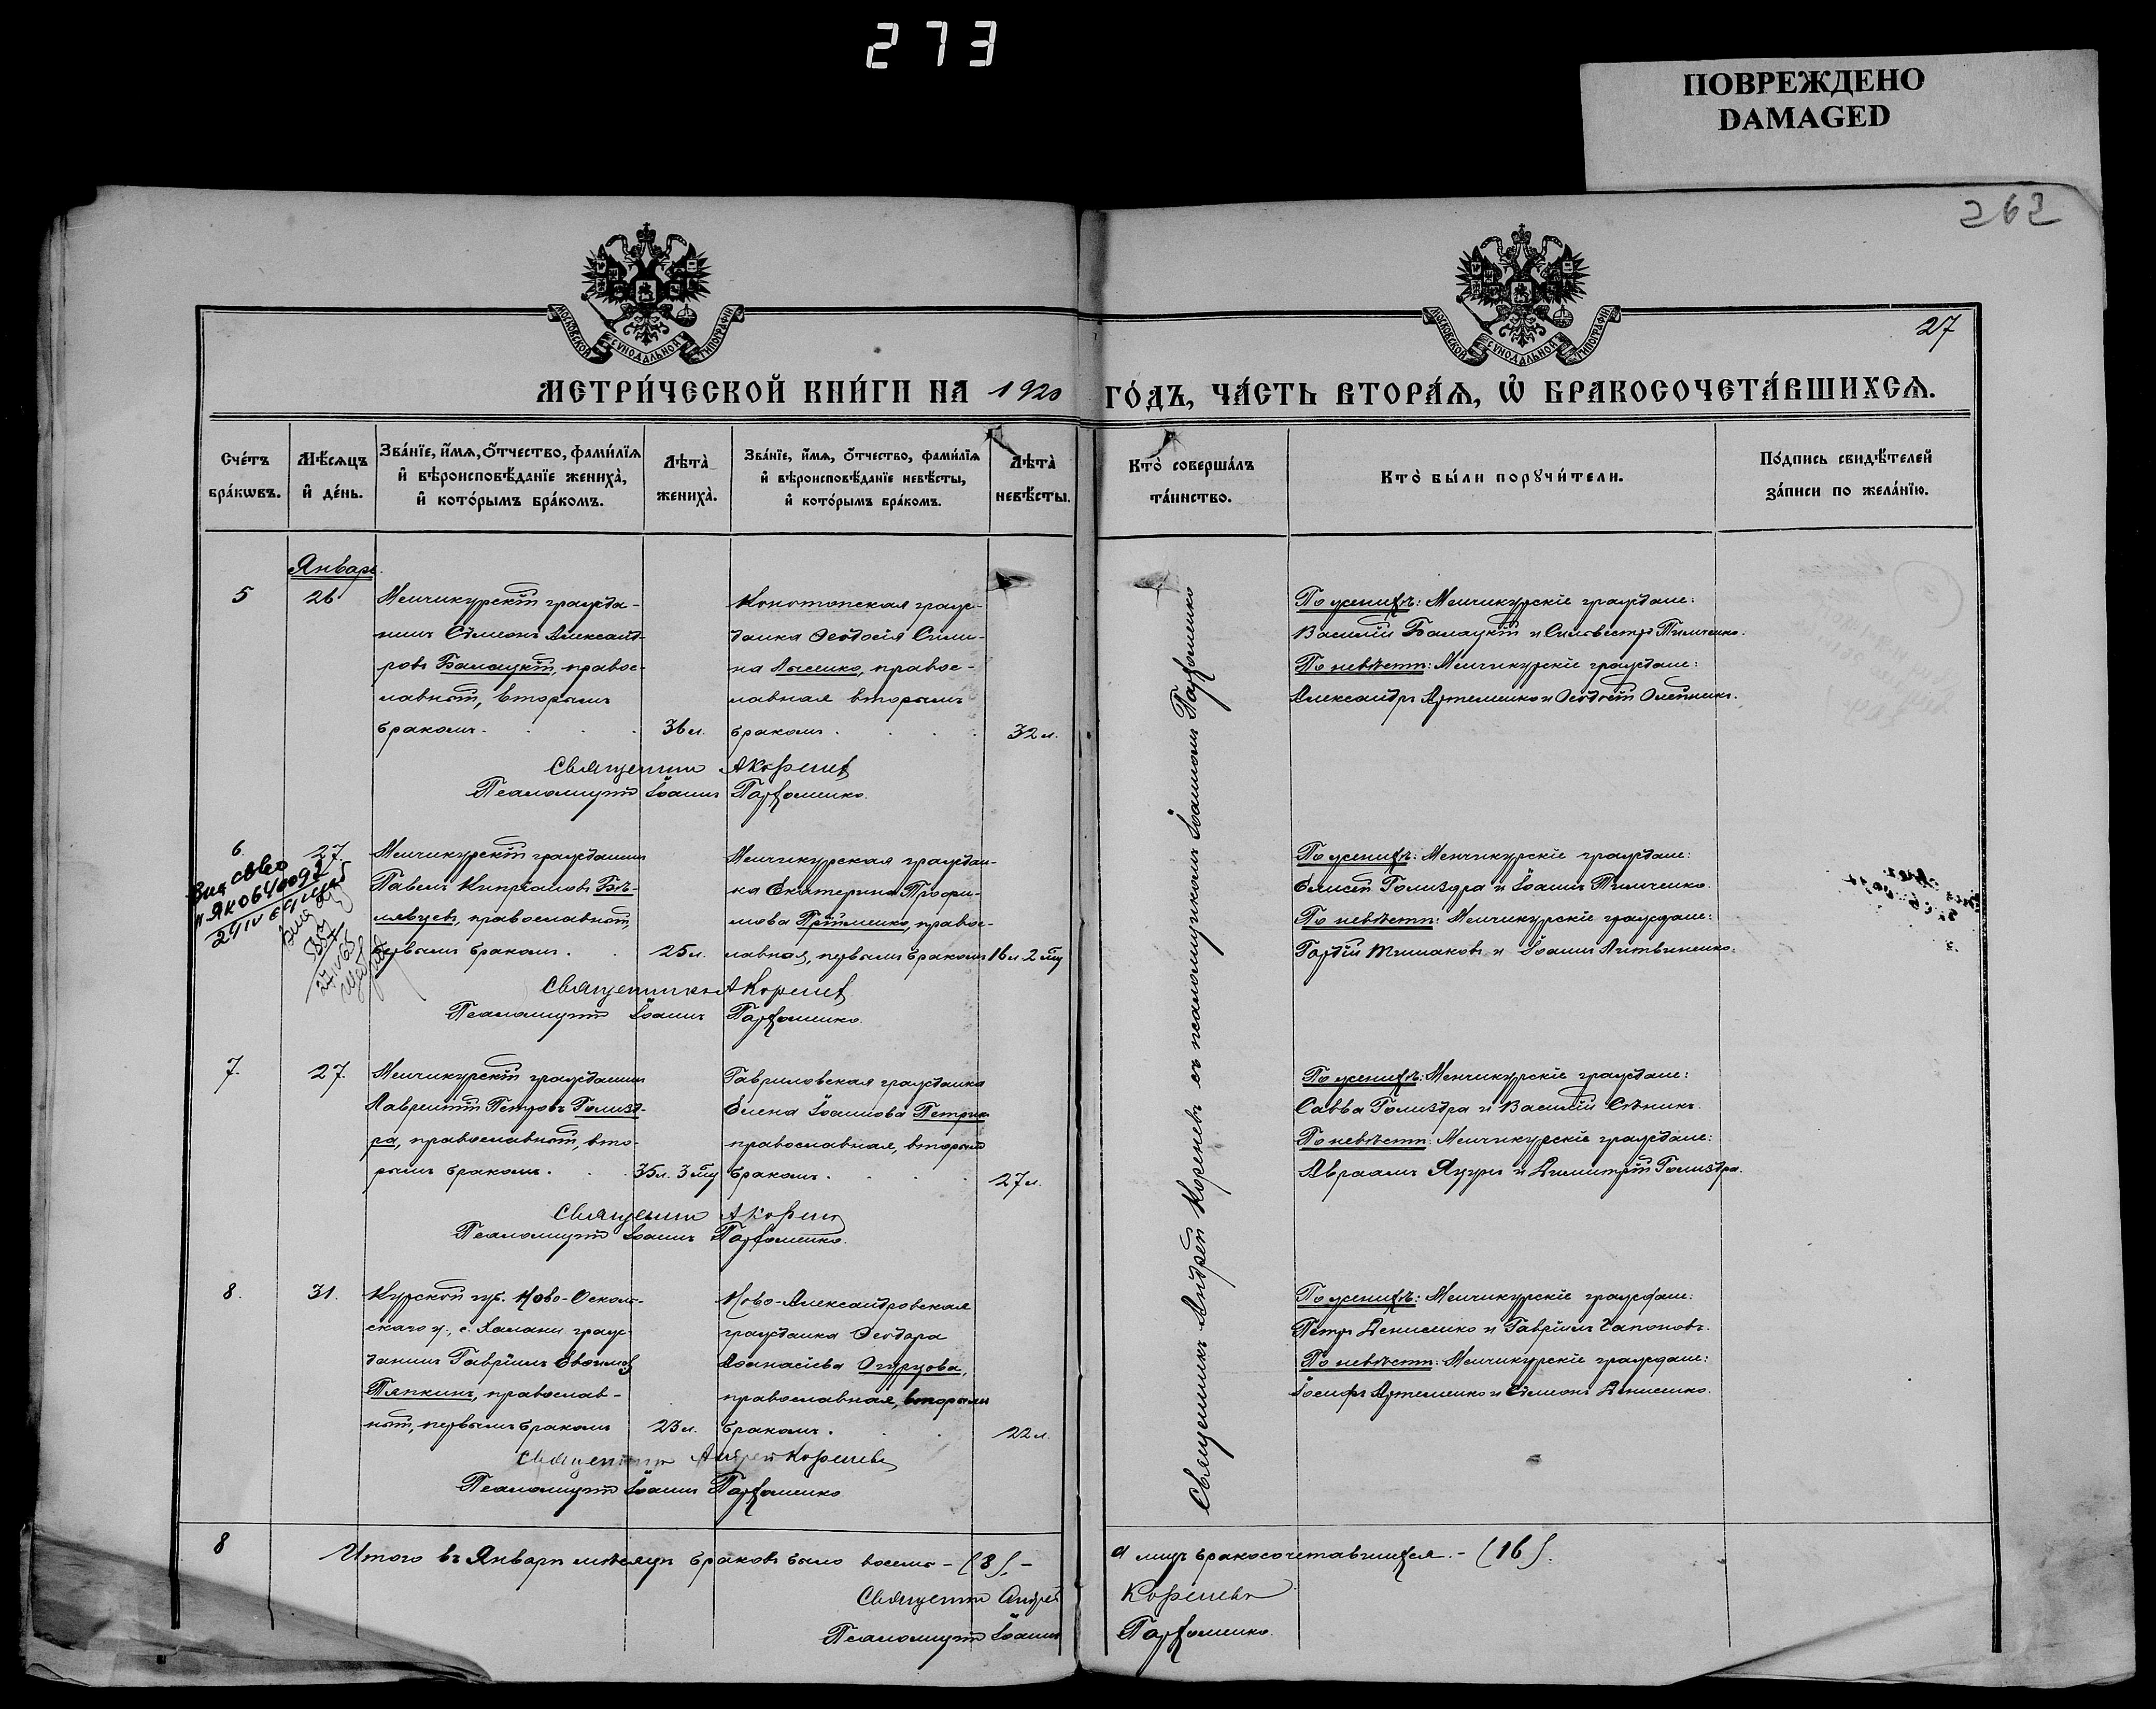 273
ПОВРЕЖДЕНО
DAMAGED
262
27
МОСКОВСКОЙ СѴНОДАЛЬНОЙ ТИПОГРАФІИ
МОСКОВСКОЙ СѴНОДАЛЬНОЙ ТИПОГРАФІИ
МЕТРИ́ЧЕСКОЙ КНИ́ГИ НА 1920 ГО́ДЪ, ЧА́СТЬ ВТОРА́Ѧ, Ѡ҆ БРАКОСОЧЕТА́ВШИХСѦ.
Сче́тъ бра́кωвъ.
Мѣ́сяцъ и҆ де́нь.
Зва́нїе, и҆́мя, ѻ҆́тчество, фами́лїя и҆ вѣроисповѣ́данїе жениха̀, и҆ кото́рымъ бра́комъ.
Лѣта̀ жениха̀.
Зва́нїе, и҆́мя, ѻ҆́тчество, фами́лїя и҆ вѣроисповѣ́данїе невѣ́сты, и҆ кото́рымъ бра́комъ.
Лѣта̀ невѣ́сты.
Кто̀ соверша́лъ та́инство.
Кто̀ бы́ли порꙋчи́тели.
По́дпись свидѣ́телей за́писи по жела́нїю.
Январь.
5
26
Менчикурскій гражда-
нинъ Сѵмеонъ Александ-
ровъ Балацкій, правос-
лавный, вторымъ
бракомъ.
36 л.
Конотопская граж-
данка Ѳеодосія Сими-
на Лысенко, правос-
лавная вторымъ
бракомъ.
32 л.
По женихѣ: Менчикурскіе граждане:
Василій Балацкій и Сильвестръ Тимченко.
По невѣстѣ: Менчикурскіе граждане:
Александръ Артеменко и Ѳеодосій Олейникъ.
Священникъ АКореневъ
Псаломщикъ Іоаннъ Пархоменко.
6.
27.
Вид св-во
Менчикурскій гражданинъ
Павелъ Кипріановъ Бѣ-
лявцевъ, православный,
первымъ бракомъ.
25 л.
Менчикурская граждан-
ка Екатерина Трофи-
мова Пріименко, правос-
лавная, первымъ бракомъ
16 л. 2 мц
По женихѣ: Менчикурскіе граждане:
Елисей Голиздра и Іоаннъ Тимченко.
По невѣстѣ: Менчикурскіе граждане:
Гордій Тимаковъ и Іоаннъ Литвиненко.
Священникъ АКореневъ
Псаломщикъ Іоаннъ Пархоменко.
7.
27.
Менчикурскій гражданинъ
Лаврентій Петровъ Голизд-
ра, православный, вто-
рымъ бракомъ.
35 л. 3 мц
Гавриловская гражданка
Елена Іоаннова Петрик
православная, вторымъ
бракомъ.
27 л.
По женихѣ: Менчикурскіе граждане:
Савва Голиздра и Василій Сѣникъ.
По невѣстѣ: Менчикурскіе граждане:
Авраамъ Яцуръ и Димитрій Голиздра.
Священникъ АКореневъ
Псаломщикъ Іоаннъ Пархоменко.
8.
31.
Курской губ. Ново-Осколь-
скаго у., с. Халани граж-
данинъ Гавріилъ Евѳимовъ
Тяпкинъ, православ-
ный, первымъ бракомъ
23 л.
Ново-Александровская
гражданка Ѳеодора
Аѳанасіева Огурцова,
православная, вторымъ
бракомъ.
22 л.
По женихѣ: Менчикурскіе граждане:
Петръ Денисенко и Гавріилъ Чапоновъ.
По невѣстѣ: Менчикурскіе граждане:
Іосифъ Артеменко и Сѵмеонъ Денисенко.
Священникъ Андрей Кореневъ
Псаломщикъ Іоаннъ Пархоменко
Священникъ Андрей Кореневъ съ псаломщикомъ Іоанномъ Пархоменко
8
Итого въ Январѣ мѣсяцѣ браковъ было восемь - (8). - а лицъ бракосочетавшихся. - (16).
Священникъ Андрей Кореневъ
Псаломщикъ Іоаннъ Пархоменко.